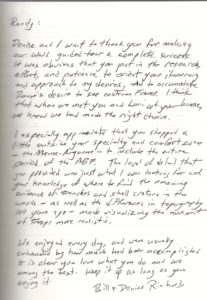 Randy:
Denise and I want to thank you for making
our WWI guided tour a complete success.
It was obvious that you put in the research,
effort, and patience to orient your itinerary
and approach to my desires, and to accomodate
desire to see eastern France. I think
that when we met you and at your house,
we knew we had made the right choice.
I especially appreciate that you stepped a
little outside your specialty and comfort zone
in the Meuse-Argonne to include the entire
period of the AEF. The level of detail that
you provided was just what I was looking for and
your knowledge of where to find the remaining
evidence of trenches and shell craters in the
woods – as well as the differences in typography
100 years ago – made visualizing the movement
of troops more realistic.
We enjoyed every day, and were usually
enhanced by how much had been accomplished.
It is clear you love what you do and are
among the best. Keep it up as long as you
enjoy it.
Bill + Denise Richards